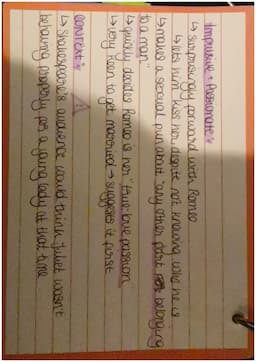 Impulsive + Passionate:
↳ surprisingly forward with Romeo
↳ lets him kiss her, despite not knowing who he is
↳ makes a sexual pun about "any other part belonging
to a man"
↳ quickly decides Romeo is her "true love passion"
↳ very keen to get married → suggests it first
CONTEXT:
↳ Shakespeare's audience could think Juliet wasn't
behaving properly for a young lady at that time